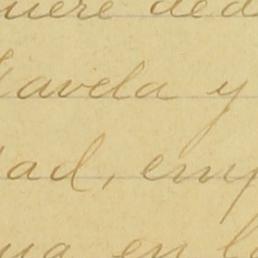 uere ded
avela y
dad, emp
ua en lo